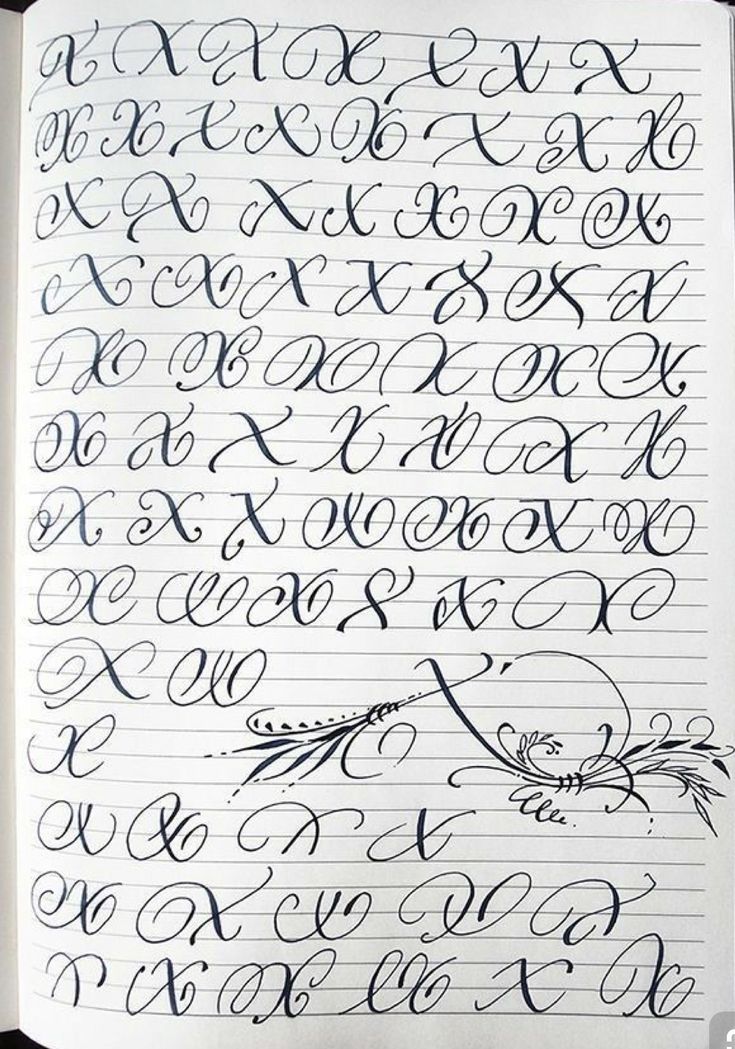 X X X X X X X
X X X X X X X X
X X X X X X X
X X X X X X X
X X X X X X
X X X X X X X
X X X X X X X
X X X X X X
X X
X X
X X X X
X X X X X
X X X X X X